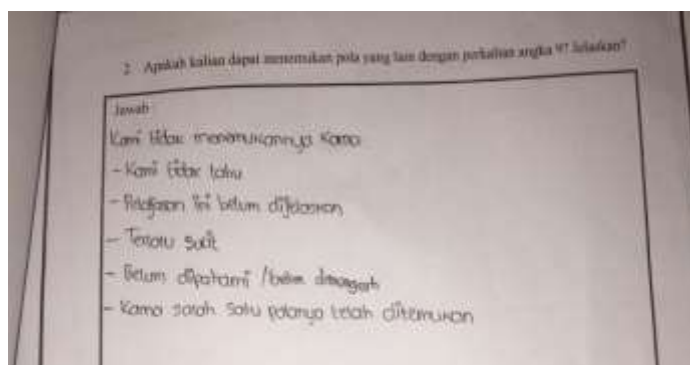 2. Apakah kalian dapat menemukan pola yang lain dengan perkalian angka 9? Jelaskan?
Jawab
Kami tidak menemukannya Karna
- Kami tidak tahu
- Pelajaran ini belum dijelaskan
- Terlalu sulit
- Belum dipahami / belum
- Karna salah satu polanya telah ditemukan